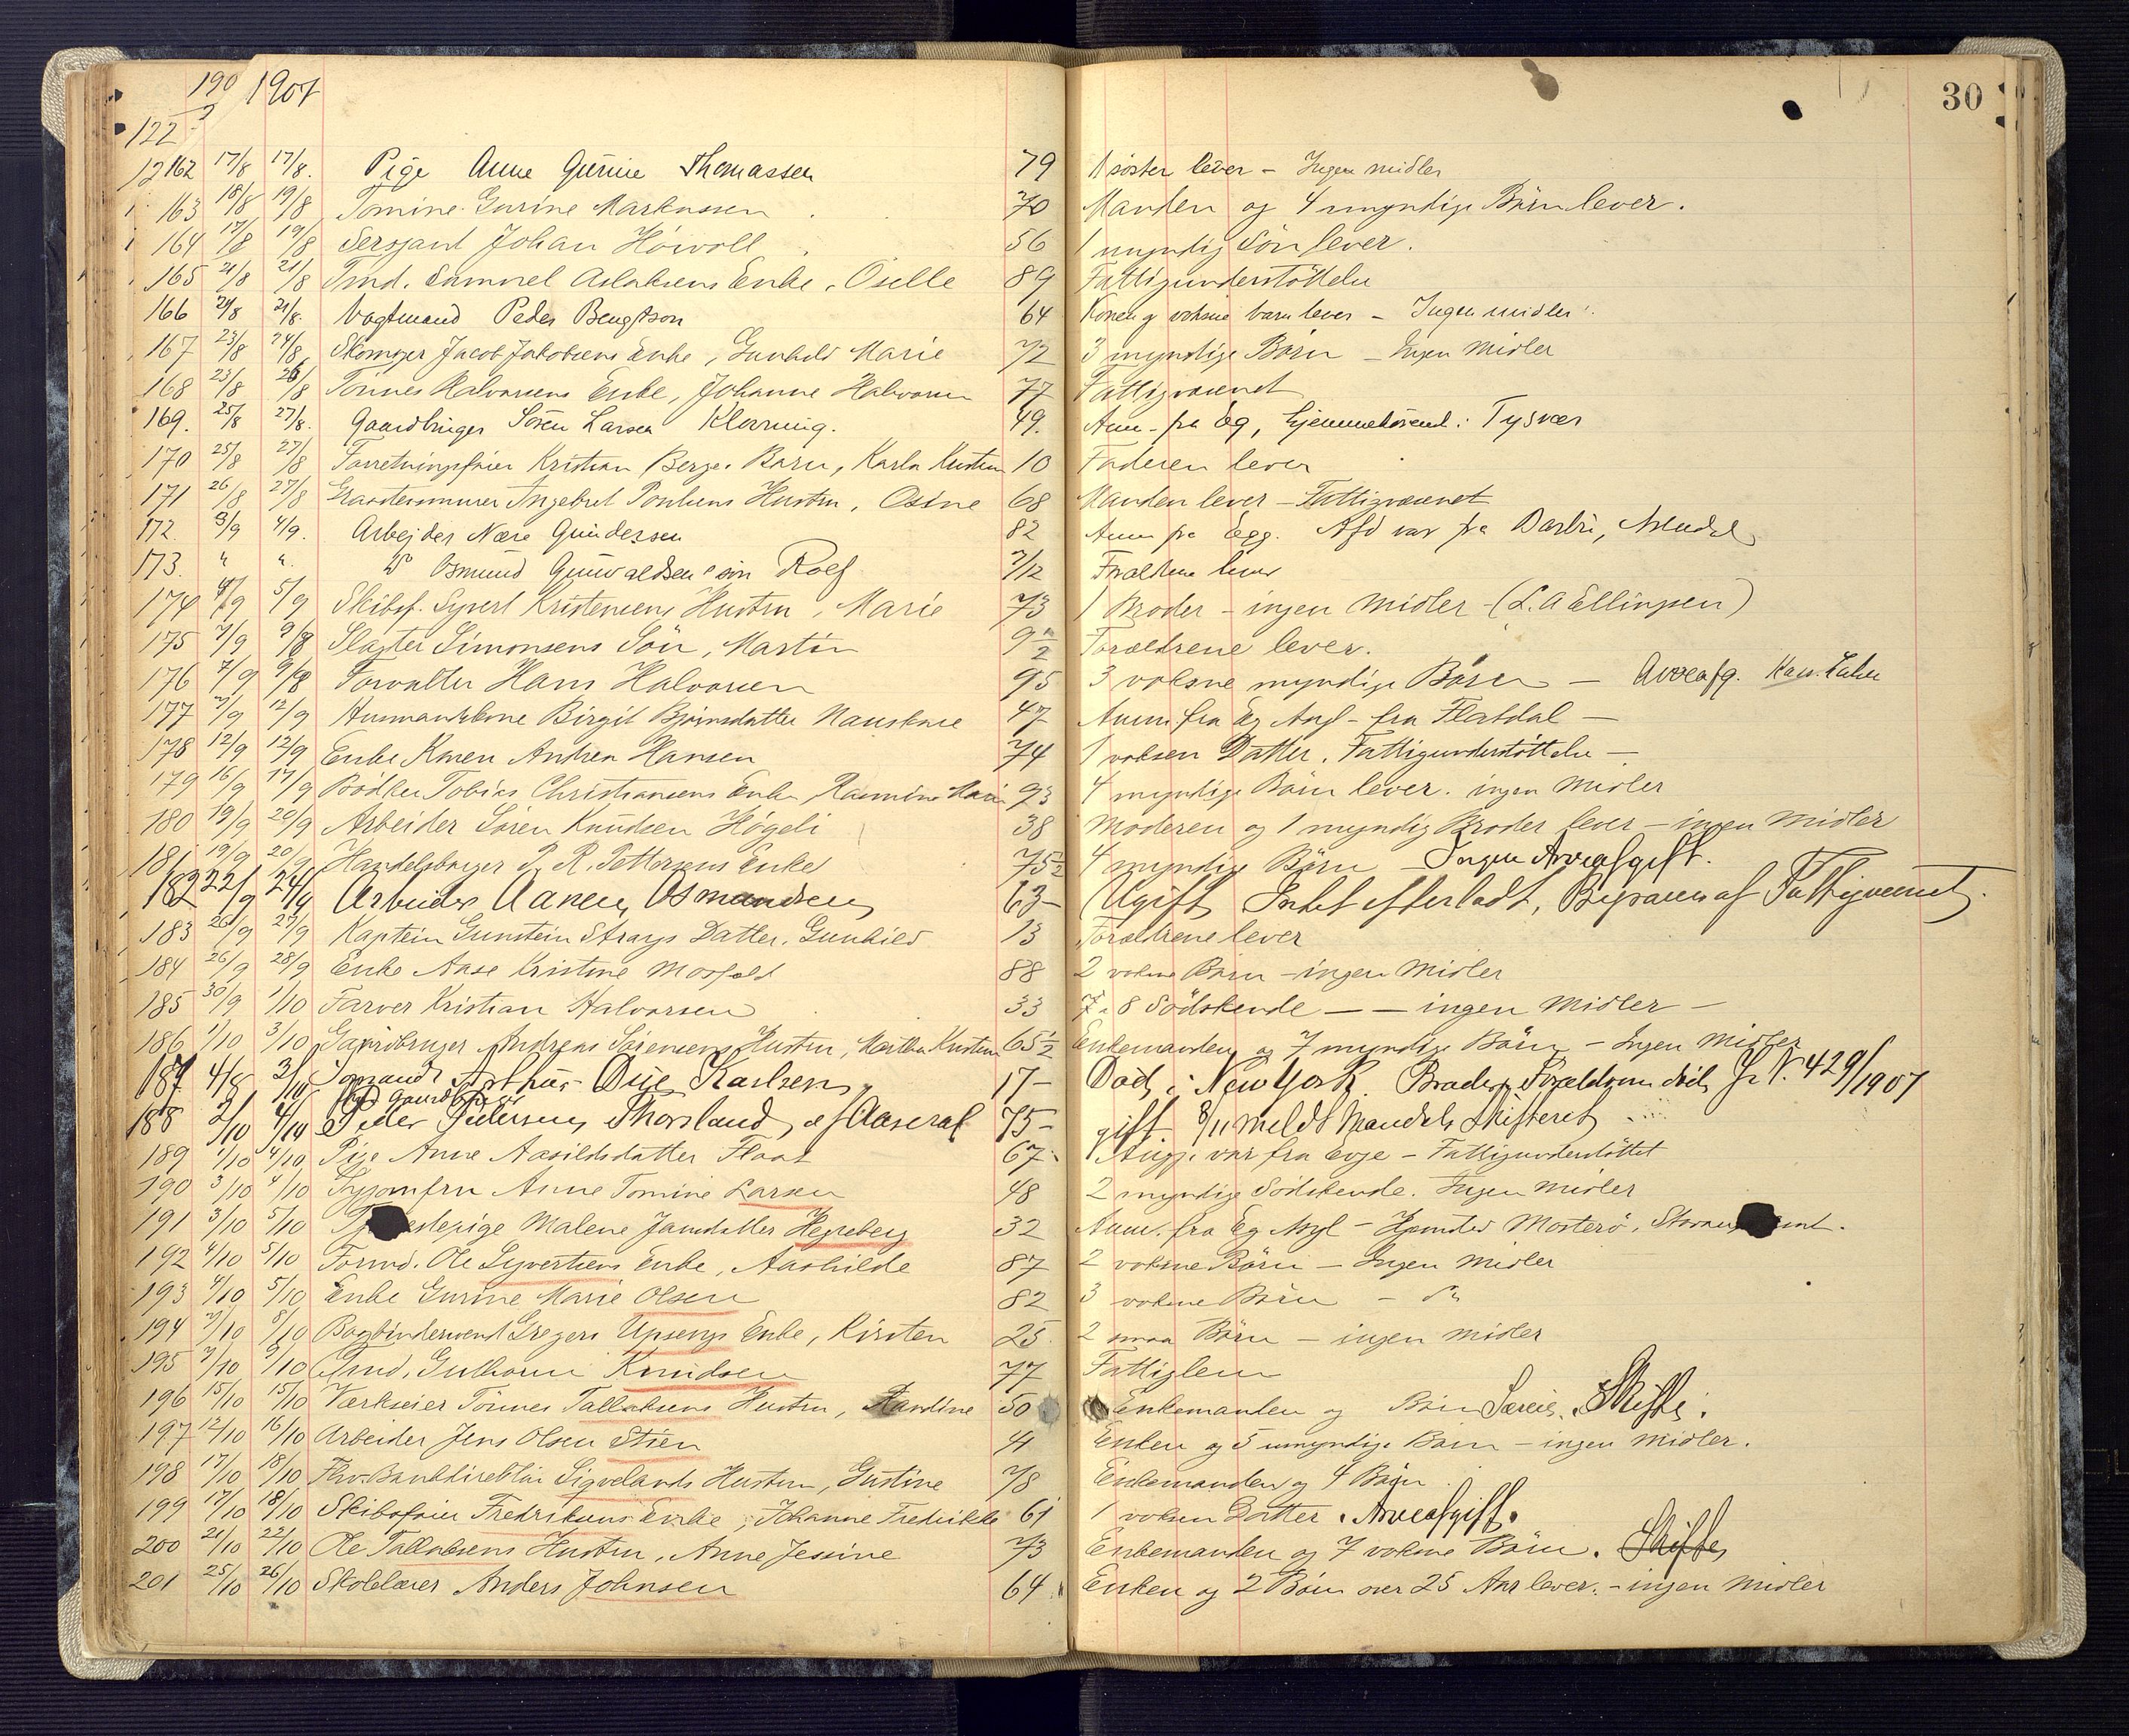 190 1907 30
122
162 17/8 17/8. Pige Anne Gurine Thomassen 79 1 søster lever - Ingen midler
163 18/8 19/8 Tomine Gurine Markussen 70 Manden og 4 umyndige Børn lever.
164 17/8 19/8 Sersjant Johan Höivoll 56 1 myndig Sön lever.
165 21/8 21/8 Tmd. Samuel Aslaksens Enke, Oselle 89 Fattigunderstöttelse
166 21/8 21/8. Vagtmand Peder Bengtson 64 Konen og voksne barn lever - Ingen midler.
167 23/8 24/8 Skomger Jacob Jakobsens Enke, Gunhild Marie 72 3 myndige Börn - Ingen Midler
168 23/8 26/8 Tönnes Halvorsens Enke, Johanne Halvorsen 77 Fattigvæsenet
169. 25/8 27/8. Gaardbruger Sören Larsen Klovning. 49. Anm. fra Eg, hjemmehörend: Tysvær
170 25/8 27/8 Forretningsförer Kristian Berges Barn, Karla Kristine 10 Faderen lever
171 26/8 27/8 Graastensmurer Ingebret Poulsens Hustru, Osine 68 Manden lever - Fattigvæsenet
172. 3/9 4/9. Arbejder Nære Gundersen 82 Anm fra Egg. Afd var fra Barbu, Arendal
173. " ". Do Osmund Gunvaldsens sön Rolf 7/12 Forældrene lever
174 4/9 5/9 Skibsf. Syvert Kristensens Hustru, Marie 73 1 Broder - ingen Midler - (L. A Ellingsen)
175 7/9 9/8 Slagter Simonsens Sön, Martin 9 1/2 Forældrene lever.
176 7/9 9/8 Forvalter Hans Halvorsen 95 3 voksne myndige Börn - Arveafg.
177 7/9 12/9 Gunmandskone Birgit Bjørnsdatter Nauskare 47 Anm. fra Eg Asyl - fra Flatdal -
178 12/9 12/9 Enke Karen Andrea Hansen 74 1 voksen Datter. Fattigunderstöttelse -
179 16/9 17/9 Bödker Tobias Christiansens Enke, Rasmine Marie 93 4 myndige Börn lever. ingen Midler
180 19/9 20/9 Arbeider Sören Knudsen Högeli 38 Moderen og 1 myndig Broder lever - ingen Midler
181 19/9 20/9 Handelsborger P. R. Pettersens Enke 75 1/2 4 myndige Börn - Ingen Arveafgift.
182 22/9 24/9 Arbeider Aanen Osmundsen 63 - Ugift, Intet efterladt, Begraven af Fattigvæsenet.
183 26/9 27/9 Kaptein Gunstein Strays Datter, Gunhild 13 Forældrene lever
184 26/9 28/9 Enke Aase Kristine Mosfald 88 2 voksne Börn - ingen Midler
185 30/9 1/10 Farver Kristian Halvorsen 33 7 a 8 Södskende - - ingen Midler -
186 1/10 3/10 Gaardbruger Andreas Sörensens Hustru, Martha Kristine 65 1/2 Enkemanden og 7 myndige Börn - Ingen Midler
187 4/8 3/10 Sömand Arthur Karlsen 17 - Död i New York. Forældrene död, J. N. 429/1907
Gaardbruger
188 2/10 4/10 Peder Pedersen Thorsland, af Aaseral 75 - gift. 8/11 meldt Mandals Skifteret
189 1/10 4/10 Pige Anne Aasildsdatter Flaat 67 - Angje. var fra Evje - Fattigunderstöttet
190 3/10 4/10 Anne Tomine Larsen 48 2 myndige Södskende. Ingen Midler
191 3/10 5/10 Tjenestepige Malene Jansdatter Hegreberg 32 Anm. fra Eg Asyl - Hjemsted Mosterö, Stavan
192 4/10 5/10 Formd. Ole Syvertsens Enke, Aashilde 87 2 voksne Börn - Ingen Midler
193 4/10 5/10 Enke Gurine Marie Olsen 82 3 voksne Börn - do
194 7/10 8/10 Bogbindersvend Gregers Upsengs Enke, Kirsten 25. 2 smaa Börn - ingen Midler
195 7/10 9/10 Tmd. Gulhorm Knudsen 77 Fattiglem
196 15/10 15/10 Værkseier Tönnes Tallaksens Hustru, Randine 50 Enkemanden og Börn Særeie. Skifte.
197 12/10 16/10 Arbeider Jens Olsen Stien 41 Enken og 5 umyndige Börn - ingen Midler.
198 17/10 18/10 Fhv. Bankdirektör Sigvelands Hustru, Gustine 78 Enkemanden og 4 Börn
199 17/10 18/10 Skibsfører Fredriksens Enke, Johanne Fredrikke 61 1 voksen Datter. Arveafgift.
200 21/10 22/10 Ole Tallaksens Hustru, Anne Jessine 73 Enkemanden og 7 voksne Börn. Skifte
201 25/10 26/10 Skolelærer Anders Johnsen 64 Enken og 2 Börn over 25 Aar lever. - ingen Midler